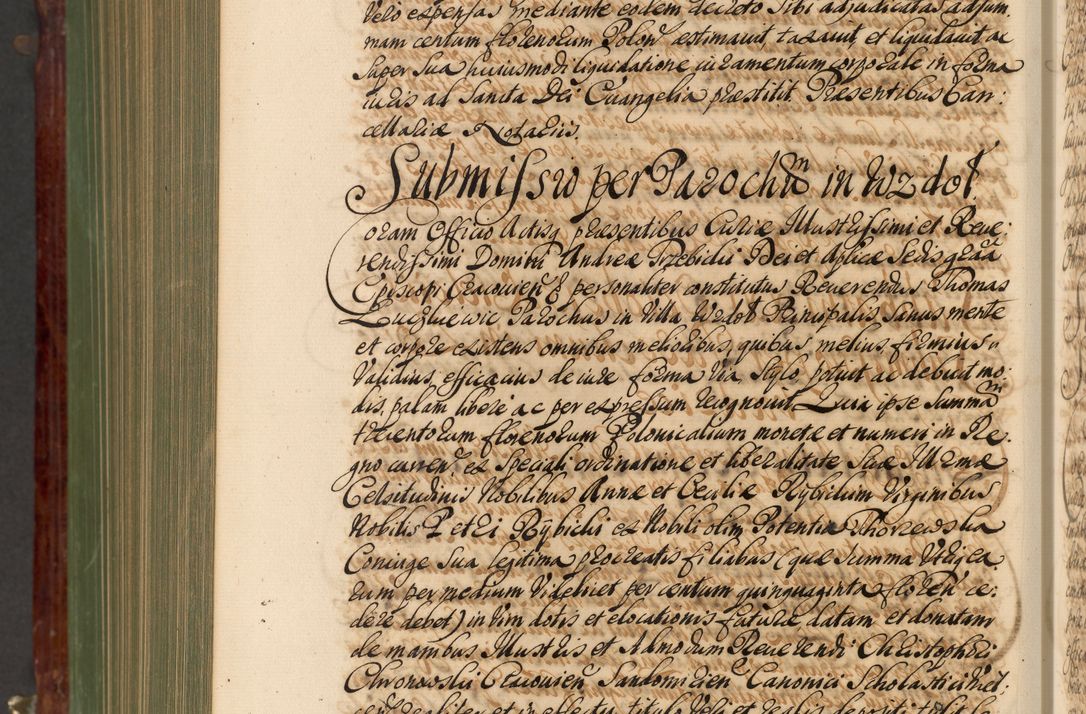 Velo expensas mediante eodem decreto sibi adjudicatas ad sum
mam centum florenorum Polon aestimauit, taxauit, et liquidauit ac
super sua huiusmodi liquidatione iuramentum corporale in forma
iuris ad Sancta Dei Euangelia praestitit. Praesentibus Can:
cellariae Notariis.
Submissio per Parochum in Wzdoł
Coram Officio Actisq praesentibus Curiae Illustrissimi et Reue:
rendissimi Domini Andreae Trzebicki Dei et Aplicae Sedis graa
Episcopi Cracouien personaliter constitutus Reuerendus Thomas
Parochus in Villa Wzdoł Principalis sanus mente
et corpore existens omnibus melioribus, quibus melius, firmius
validius, efficacius de iure forma via, stylo, potuit ac debuit mo:
dis, palam libere ac per expressum recognouit, Quia ipse summam
trecentorum florenorum Polonicalium monetae et numeri in Re:
gno curren ex speciali ordinatione et liberalitate suae Illrmae
Celsitudinis Nobilibus Annae et Ceciliae Rybickim Virginibus
Nobilis Petri Rybicki ex Nobili olim Potentia Thorzewska
Coniuge sua legitima procreatis filiabus (quae summa utriqea
rum per medium videlicet per centum quinquaginta floren ce:
dere debet) in vim dotis et elocationis futurae datam et donatam
de manibus Illustris et Admodum Reuerendi Christophori
Chronowski Cracouien Sandomirien Canonici Scholastici Viel: